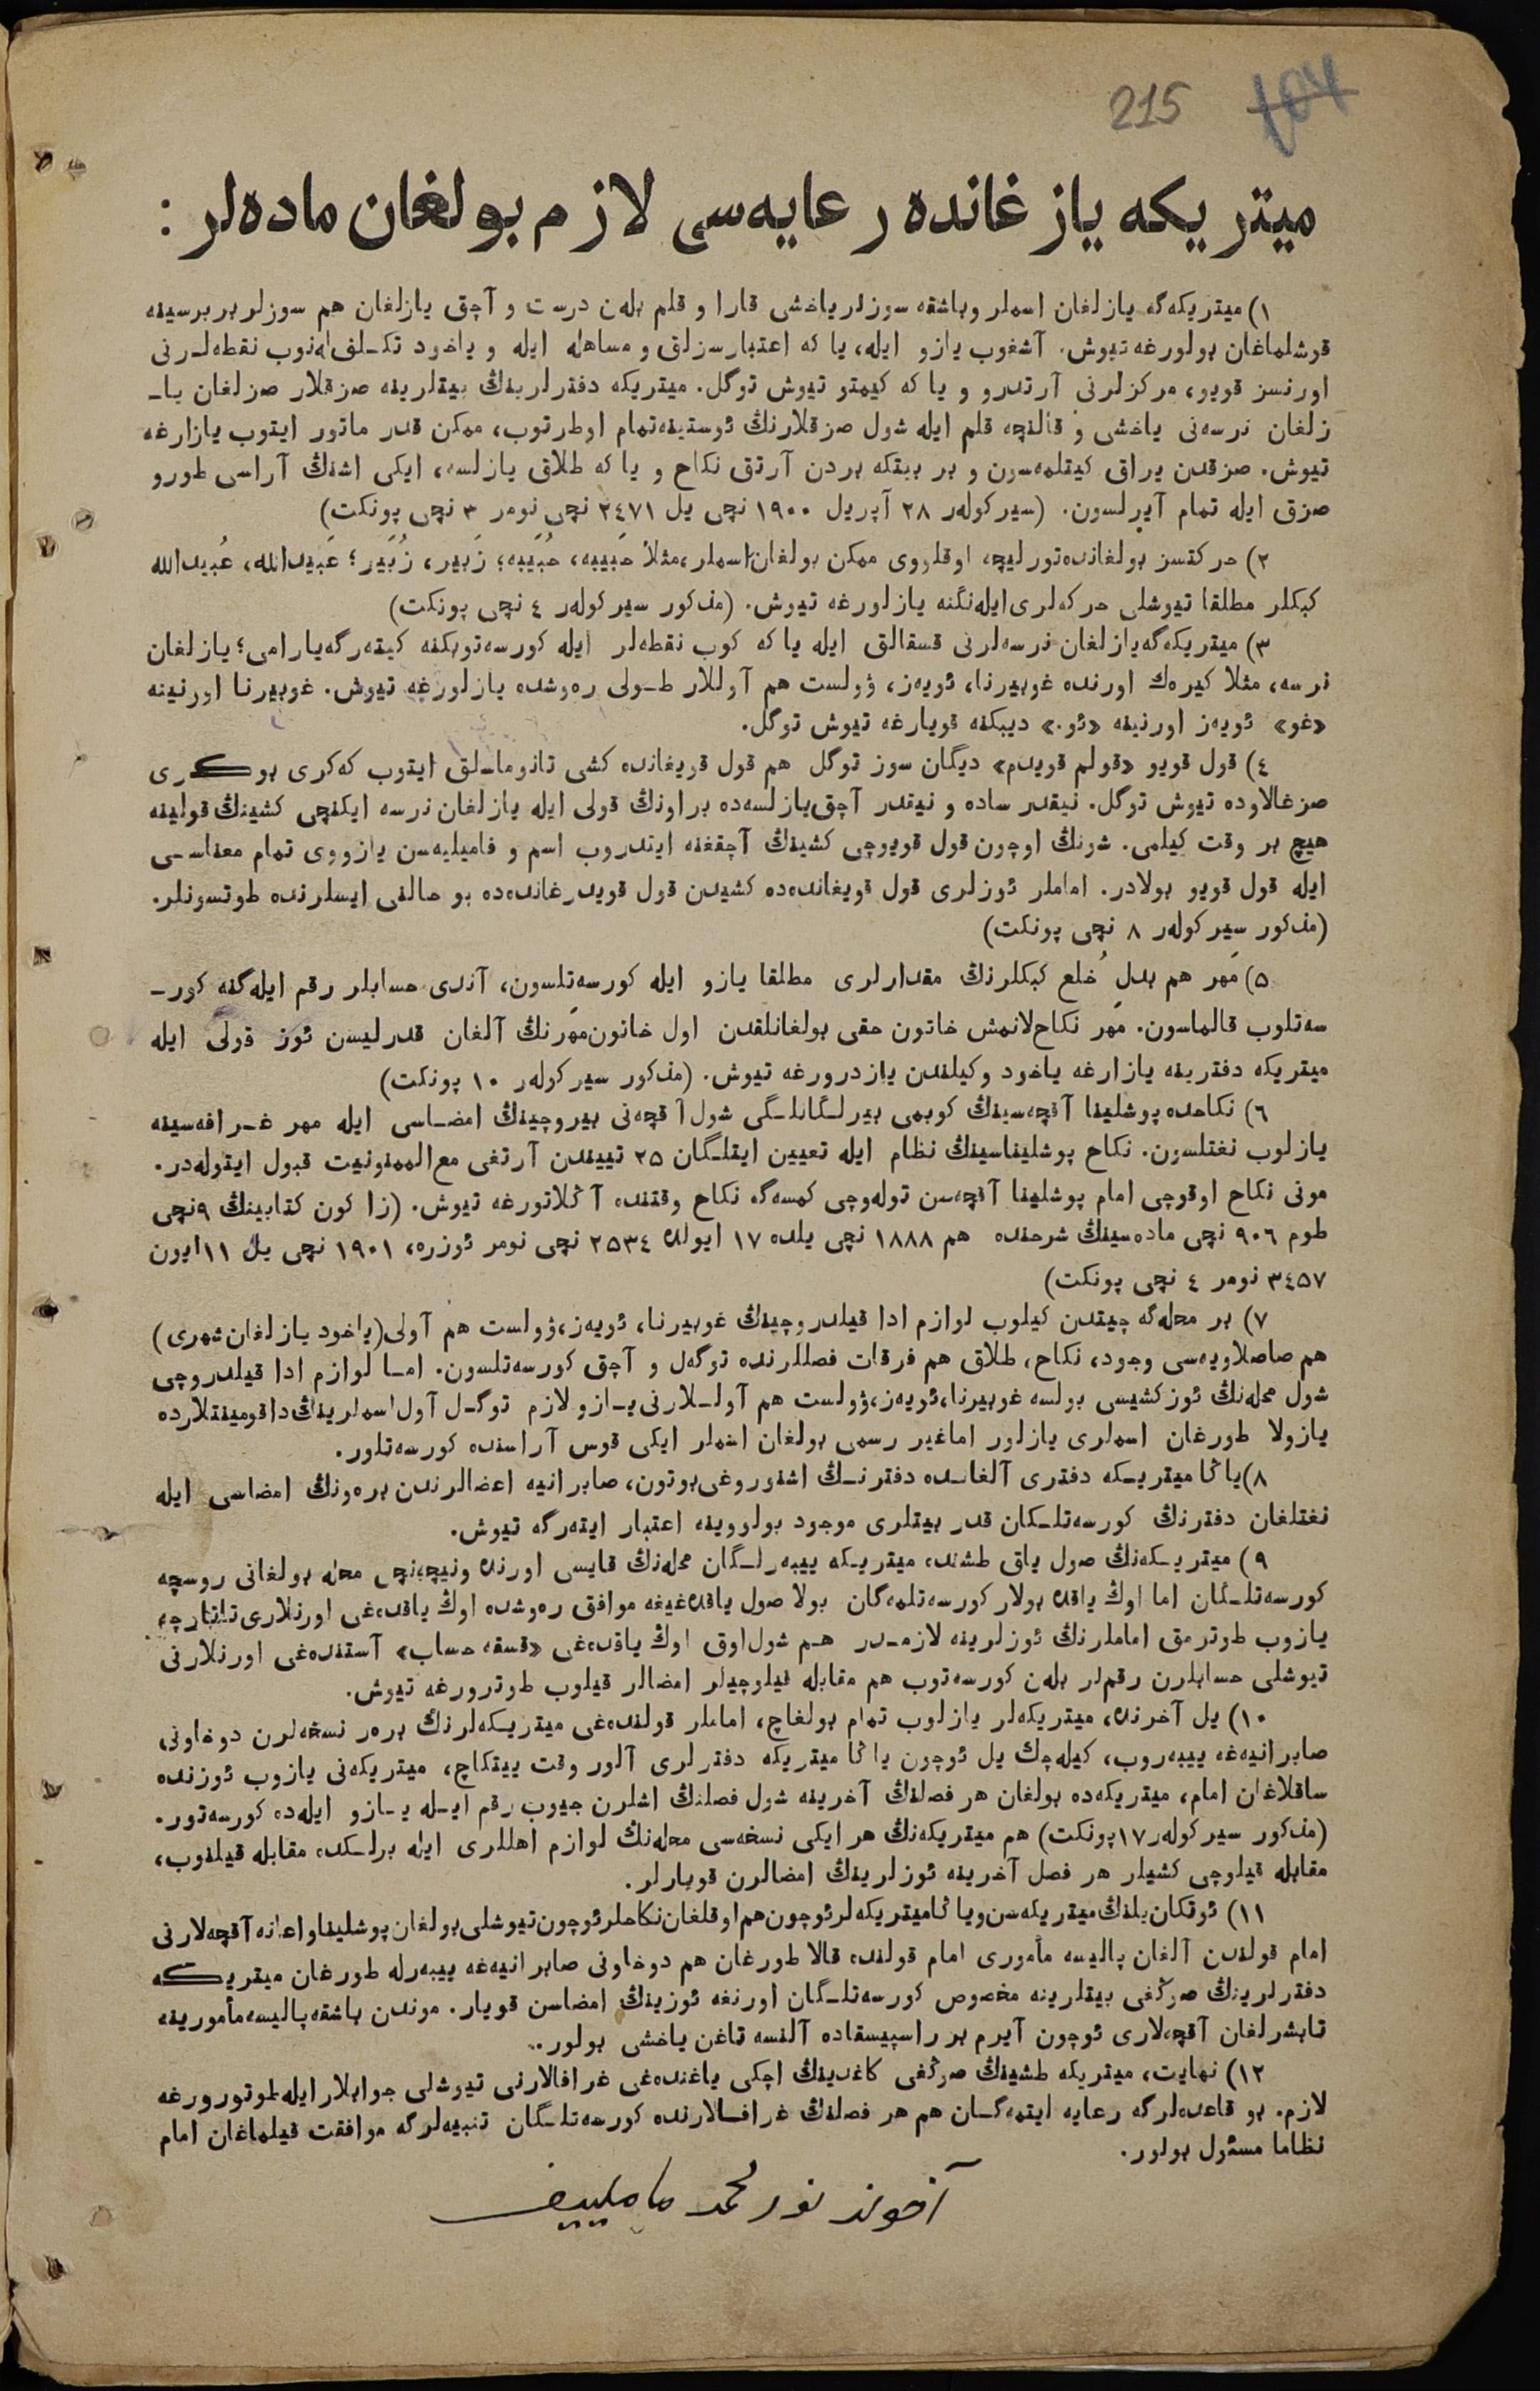 215 104
میتریکه یازغانده رعایەسی لازم بولغان مادەلر :
۱) میتریکەگه یازلغان اسملر وباشقه سوزلر یاخشی قارا و قلم بلەن درست و آچق یازلغان هم سوزلر بربرسینه
قوشلماغان بولورغه تیوش. آشغوب یازو ایله، یا که اعتبارسزلق و مساهله ایله و یاخود تکـلف لەنوب نقطەلـرنی
اورنسز قویو، مرکزلرنی آرتدرو و یا که کیمتو تیوش توگل. میتریکه دفترلرینڭ بیتلرینه صزقلار صزلغان یاـ
زلغان نرسەنی یاخشی و قالنچه قلم ایله شول صزقلارنڭ ئوستینەتمام اوطرتوب، ممکن قدر ماتور ایتوب یازارغه
تیوش. صزقدن یراق کیتلمەسون و بر بیتکه بردن آرتق نکاح و یا که طلاق یازلسه، ایکی اشنڭ آراسی طورو
صزق ایله تمام آیرلسون. (سیرکولەر ۲۸ آپریل ۱۹۰۰ نچی یل ۲٤۷۱ نچی نومر ۳ نچی پونکت)
۲) حرکتسز بولغاندەتورلیچه اوقلووی ممکن بولغان اسملر، مثلاً حَبیبه، حُبَیبه؛ زَبیر، زُبَیر؛ عَبیدالله، عُبیدالله
کبکلر مطلقا تیوشلی حرکەلری ایلەنگنه یازلورغه تیوش. (مذکور سیرکولەر ٤ نچی پونکت)
۳) میتریکەگەیازلغان نرسەلرنی قسقالق ایله یا که کوب نقطەلر ایله کورسەتوبکنه کیتەرگەیارامی؛ یازلغان
نرسه، مثلا کیرەك اورنده غوبیرنا، ئویەز، ۋولست هم آوللار طـولی رەوشده یازلورغه تیوش. غوبیرنا اورنینه
«غو» ئویەز اورنینه «ئو.» دیبکنه قویارغه تیوش توگل.
٤) قول قویو «قولم قویدم» دیگان سوز توگل هم قول قویغانده کشی تانوماـلق ایتوب کەکری بوکری
صزغالاوده تیوش توگل. نیقدر ساده و نیقدر آچق یازلسەده براونڭ قولی ایله یازلغان نرسه ایکنچی کشینڭ قولینه
هیچ بر وقت کیلمی. شونڭ اوچون قول قویوچی کشینڭ آچقغنه ایتدروب اسم و فامیلیەسن یازووی تمام معناسـی
ایله قول قویو بولادر. اماملر ئوزلری قول قویغاندەده کشیدن قول قویدرغاندەده بو حالنی ایسلرنده طوتسونلر.
(مذکور سیرکولەر ۸ نچی پونکت)
۵) مَهر هم بدلِ خُلع کبکلرنڭ مقدارلری مطلقا یازو ایله کورسەتلسون، آندی حسابلر رقم ایلەگنه کورـ
سەتلوب قالماسون. مَهر نکاحلانمش خاتون حقی بولغانلقدن اول خاتون مَهرنڭ آلغان قدرلیسن ئوز قولی ایله
میتریکه دفترینه یازارغه یاخود وکیلندن یازدرورغه تیوش. (مذکور سیرکولەر ۱۰ پونکت)
٦) نکاحده پوشلینا آقچەسینڭ کوبمی بیرلـگانلـگی شول آقچەنی بیروچینڭ امضـاسی ایله مهر غـرافەسینه
یازلوب نغتلسون. نکاح پوشلیناسینڭ نظام ایله تعیین ایتلـگان ۲۵ تییندن آرتغی مع‌الممنونیت قبول ایتولەدر.
مونی نکاح اوقوچی امام پوشلینا آقچەسن تولەوچی کمسەگه نکاح وقتنده آڭلاتورغه تیوش. (زاکون کتابینڭ ۹نچی
طوم ۹۰٦ نچی مادەسینڭ شرحنده هم ۱۸۸۸ نچی یلده ۱۷ ایولده ۲۵۳٤ نچی نومر ئوزره، ۱۹۰۱ نچی یل ۱۱ایون
۳٤۵۷ نومر ٤ نچی پونکت)
۷) بر محلەگه چیتدن کیلوب لوازم ادا قیلدروچینڭ غوبیرنا، ئویەز، ۋولست هم آولی(یاخود یازلغان شهری)
هم صاصلاویەسی وجود، نکاح، طلاق هم فرقات فصللرنده توگەل و آچق کورسەتلسون. امـا لوازم ادا قیلدروچی
شول محلەنڭ ئوزکشیسی بولسه غوبیرنا، ئویەز، ۋولست هم آولـلارنی یـازو لازم توگـل آول اسملرینڭ داقومینتلارده
یازولا طورغان اسملری یازلور اماغیر رسمی بولغان اسملر ایکی قوس آراسنده کورسەتلور.
۸)یاڭا میتریـکه دفتری آلغانـده دفترنـڭ اشنوروغی بوتون، صابرانیه اعضالرندن برەونڭ امضاسی ایله
نغتلغان دفترنڭ کورسەتلـکان قدر بیتلری موجود بولووینه اعتبار ایتەرگه تیوش.
۹) میتریـکەنڭ صول یاق طشنده میتریـکه ییبەرلـگان محلەنڭ قایسی اورنده ونیچەنچی محله بولغانی روسچه
کورسەتلـگان اما اوڭ یاقده بولار کورسەتلمەگان بولا صول یاقدەغیغه موافق رەوشده اوڭ یاقدەغی اورنلاری تاتارچه
یازوب طوترمق اماملرنڭ ئوزلرینه لازمـدر هـم شول اوق اوڭ یاقدەغی «قسقه حساب» آستندەغی اورنلارنی
تیوشلی حسابلرن رقملر بلەن کورسەتوب هم مقابله قیلوچیلر امضالر قیلوب طوترورغه تیوش.
۱۰) یل آخرنده، میتریکەلر یازلوب تمام بولغاچ، اماملر قولندەغی میتریـکەلرنڭ برەر نسخەلرن دوخاونی
صابرانیەغه ییبەروب، کیلەچك یل ئوچون یاڭا میتریکه دفترلری آلور وقت ییتکاچ، میتریکەنی یازوب ئوزنده
ساقلاغان امام، میتریکەده بولغان هر فصلنڭ آخرینه شول فصلنڭ اشلرن جیوب رقم ایـله یـازو ایلەده کورسەتور.
(مذکور سیرکولەر ۱۷پونکت) هم میتریکەنڭ هر ایکی نسخەسی محلەنڭ لوازم اهللری ایله برلـکده مقابله قیلنوب،
مقابله قیلوچی کشیلر هر فصل آخرینه ئوزلرینڭ امضالرن قویارلر.
۱۱) ئوتکان یلنڭ میتریکەسن ویاڭا میتریکەلر ئوچون هم اوقلغان نکاحلر ئوچون تیوشلی بولغان پوشلینا واعانه آقچەلارنی
امام قولندن آلغان پالیسه مأموری امام قولنده قالا طورغان هم دوخاونی صابرانیەغه ییبەرله طورغان میتریکه
دفترلرینڭ صوڭغی بیتلرینه مخصوص کورسەتلـگان اورنغه ئوزینڭ امضاسن قویار. موندن باشقه پالیسه مأمورینه
تابشرلغان آقچەلاری ئوچون آیرم بر راسپیسقاده آلنسه تاغن یاخشی بولور..
۱۲) نهایت، میتریکه طشینڭ صوڭغی کاغدینڭ اچکی یاغندەغی غرافالارنی تیوشلی جوابلار ایله طوتورورغه
لازم. بو قاعدەلرگه رعایه ایتمەگـان هم هر فصلنڭ غرافـالارنده کورسەتلـگان تنبیەلرگه موافقت قیلماغان امام
نظاما مسئول بولور.
آخوند نورمحمد ماملییف